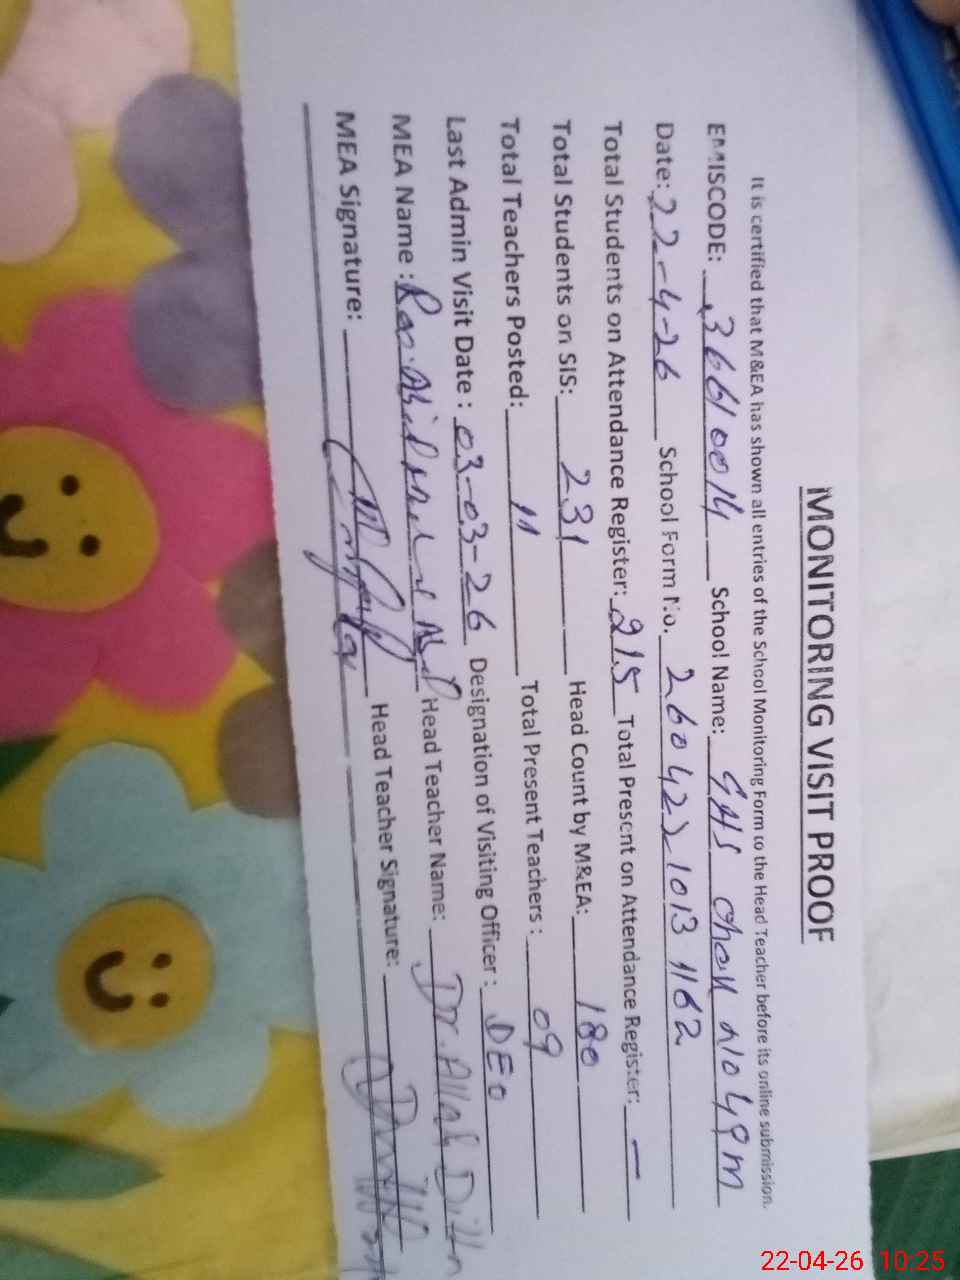 MONITORING VISIT PROOF
It is certified that M&EA has shown all entries of the School Monitoring Form to the Head Teacher before its online submission.
EMISCODE: 36610014 School Name: GHS Chak No 49M
Date: 22-4-26 School Form No. 2604221013 1162
Total Students on Attendance Register: 215 Total Present on Attendance Register: —
Total Students on SIS: 231 Head Count by M&EA: 180
Total Teachers Posted: 11 Total Present Teachers: 09
Last Admin Visit Date: 03-03-26 Designation of Visiting Officer: DEO
MEA Name: Head Teacher Name: Dr. Allah Ditta
MEA Signature: Head Teacher Signature:
22-04-26 10:25